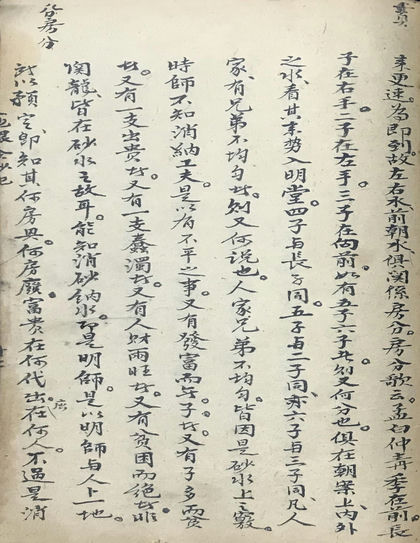 來更速為即到故左右水前朝水俱関係房分。房分歌云。孟白仲青季在前。長
子在右手。二子在左手。三子在向前。如有五子六子者。則又何分也。俱在朝案上內外
之水看其來勢入明堂。四子与長子同。五子与二子同。亦六子与三子同。凡人
家有兄弟不均匀者。則又何說也。人家兄弟不均匀。皆因是砂水上之
時師不知消納工夫。是以有不平之事。又有發富而子者。又有子多而貧
者。又有一支出貴者。又有一支蠢濁者。又有人財兩旺者。又有貧困而絕者。雖
関龍皆在砂水之故耳。能知消砂納水。即是明師。是以明師与人卜一地
以預定即知其何房興。何房廢富貴在何代出。在何人。不過是消
房分